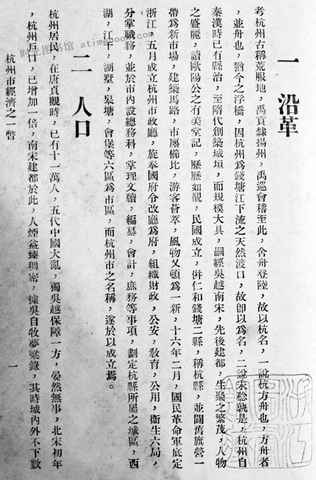 一　沿革
考杭州古稱荒服地，禹貢隸揚州，禹巡會稽至此，舍舟登陸，故以杭名，一說杭方舟也，方舟者
並舟也，猶今之浮橋，因杭州爲錢塘江下流之天然渡口，故卽以爲名，二說未稔孰是，杭州自
秦漢時已有縣治，至隋代創築城垣，而規模大具，嗣經吳越南宋，先後建都，生聚之繁茂，人物
之豐麗，讀歐陽公之有美堂記，歷歷如覩，民國成立，倂仁和錢塘二縣，稱杭縣，並闢舊旗營一
帶爲新市場，建築馬路，市廛櫛比，游客薈萃，風物又頓爲一新，十六年二月，國民革命軍底定
浙江，五月成立杭州市政廳，旋奉國府令改廳爲府，組織財政，公安，敎育，公用，衞生六局，
分掌職務，並於市內設總務科，掌理文牘，編纂，會計，庶務等事項，劃定杭縣所屬之城區，西
湖，江干，湖墅，皋塘，會堡等六區爲市區，而杭州市之名稱，遂於以成立焉。
二　人口
杭州居民，在唐貞觀時，已有十一萬人，五代中國大亂，獨吳越保障一方，晏然無事，北宋初年
，杭州戶口，已增加一倍，南宋建都於此，人煙益臻稠密，據吳自牧夢粱錄，其時城內外不下數
杭州市經濟之一瞥
一